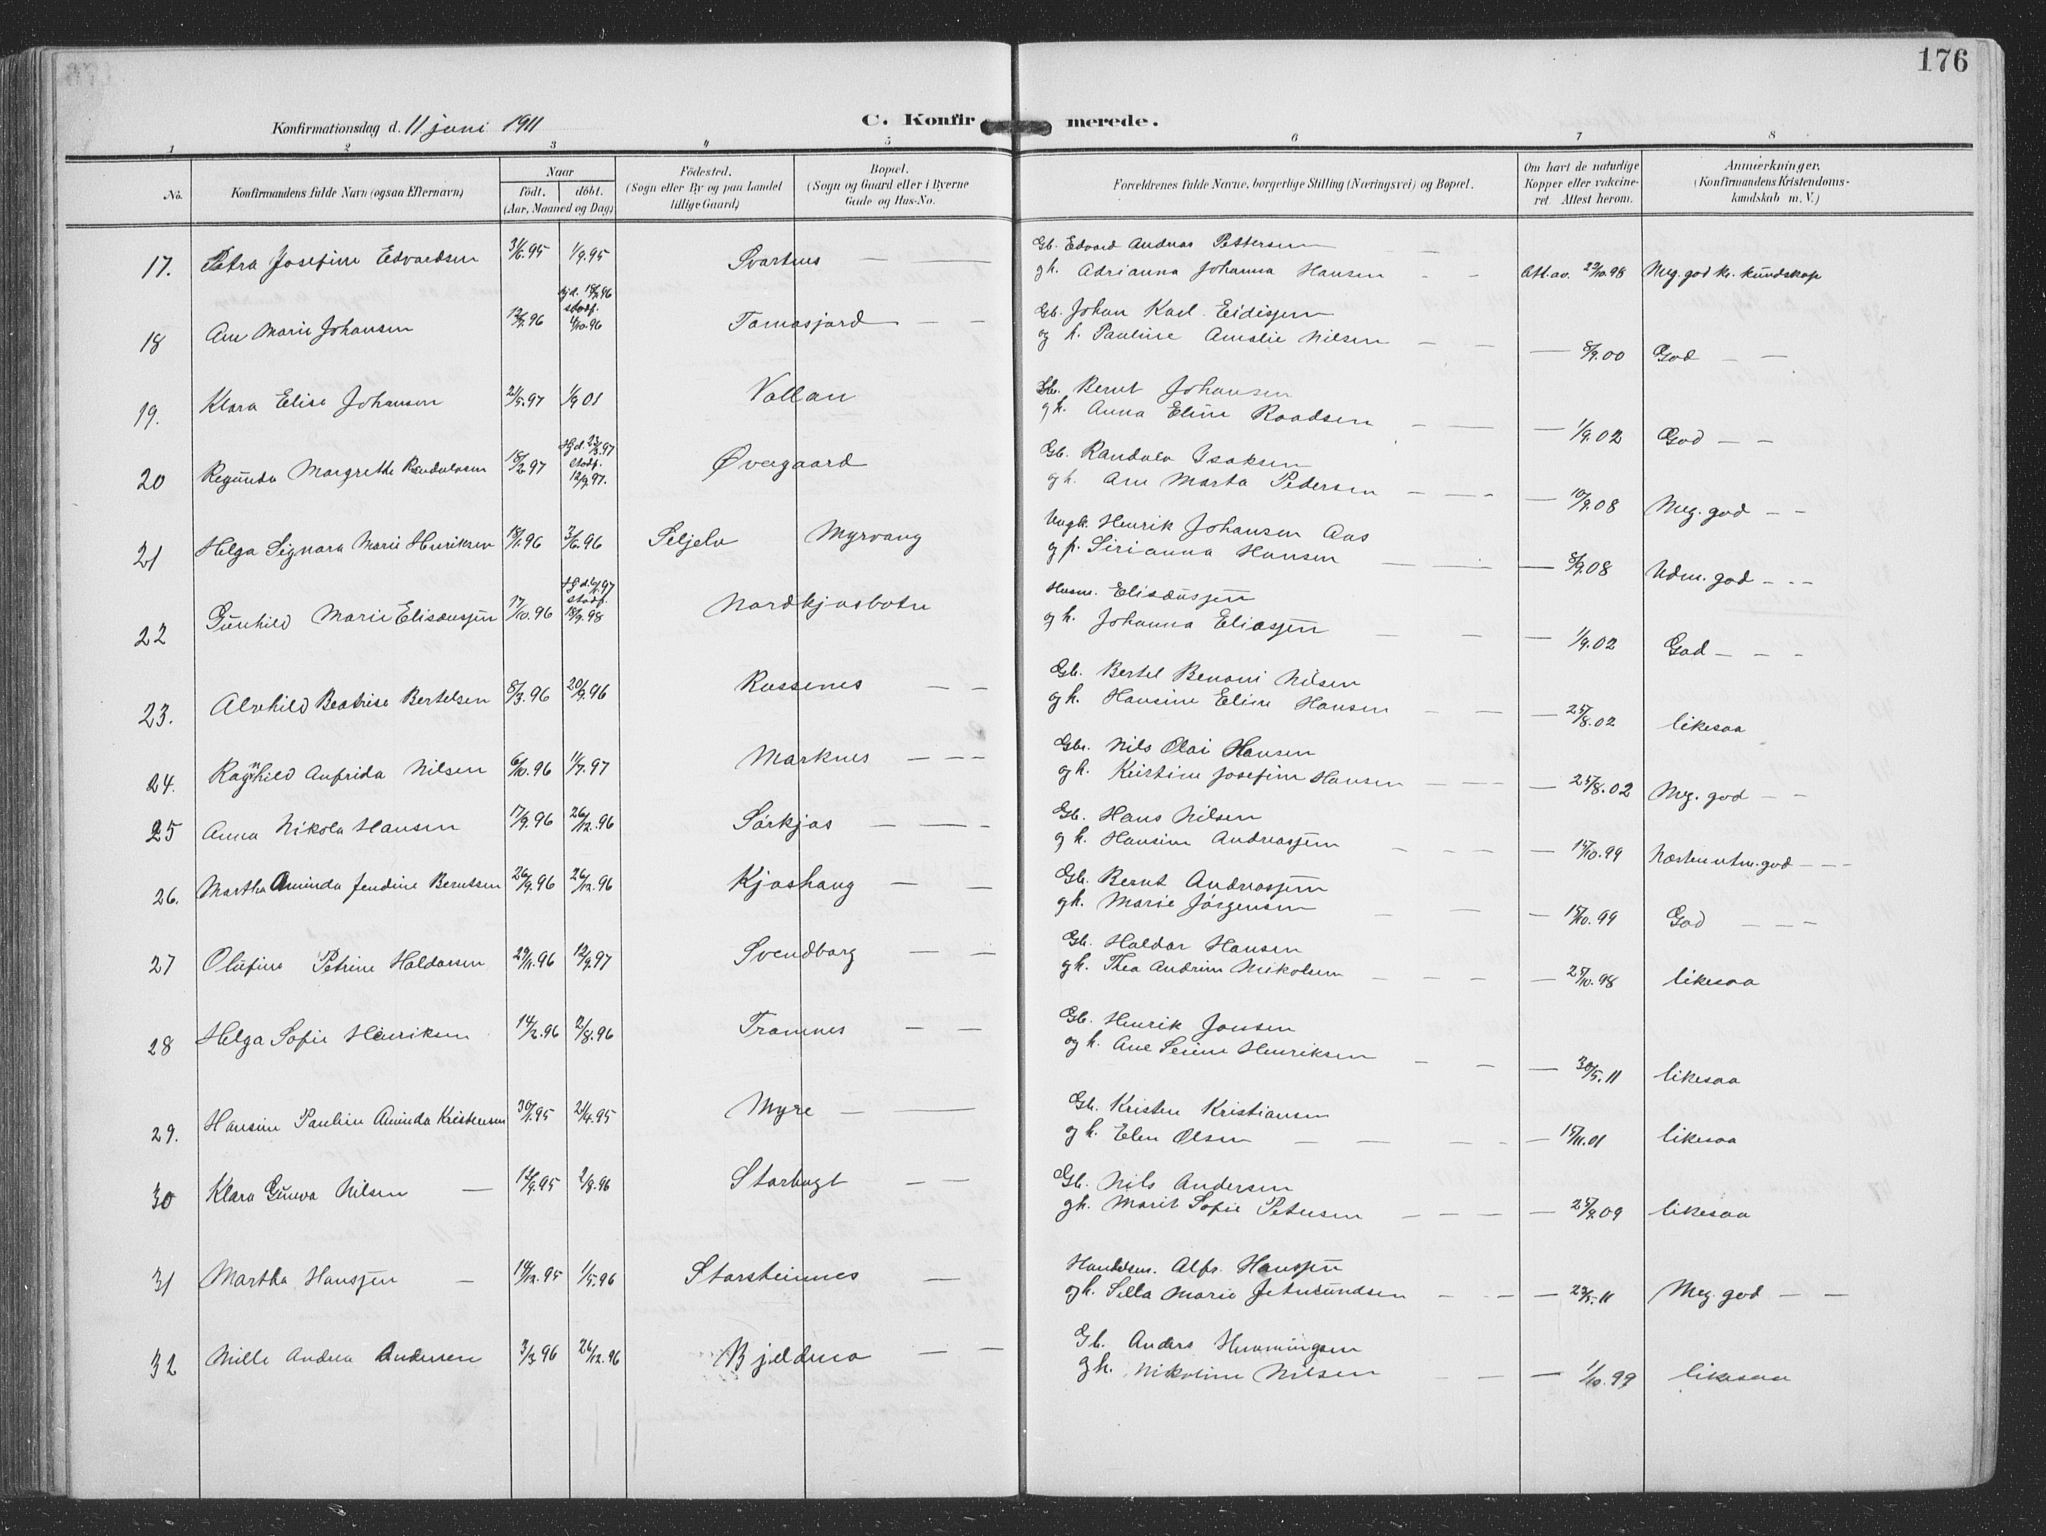 176
Konfirmationsdag d. 11 juni 1911
C. Konfirmerede.
1 2 3 4 5 6 7 8
No. Konfirmandens fulde Navn (ogsaa Efternavn). Naar født. døbt. (Aar, Maaned og Dag) Fødested. (Sogn eller By og paa Landet tillige Gaard) Bopæl. (Sogn og Gaard eller i Byerne Gade og Hus-No. Forældrenes fulde Navne, borgerlige Stilling (Næringsvei) og Bopæl. Om havt de naturlige Kopper eller vakcineret. Attest herom. Anmærkninger. (Konfirmandens Kristendomskundskab m. V.)
17. Petra Josefine Edvardsen 1/9.95 Svartnes — — Gb. Edvard Andreas Pettersen —
og h. Adrianna Johanna Hansen - - Att. av. 22/10.98 Meg. god kr. kundskap
18 Ane Marie Johansen 12/7.96 hjd. 18/7.96 stadf. 4/10.96 Tomasjord — — Gb. Johan Karl Eidisjen
og h. Pauline Amalie Nilsen — — — 8/9.00 God — —
19. Klara Elise Johansen 21/5.97 1/9 01 Vollan Gb. Bernt Johansen
og h. Anna Eline Roadsen — — — 1/9.02 God — —
20 Regunda Margrethe Randulvsen 18/2.97 Hjd. 23/3.97 stadf. 12/9.97. Øvergaard Gb. Randulv Isaksen
og h. Ane Marta Pedersen — — — 10/9.08 Meg. god — —
21 Helga Signora Marie Henriksen 18/1.96 3/6.96 Seljelv Myrvang Ungk. Henrik Johansen Aas
og p. Sirianna Hansen — — — 8/9.08 Udm. god — — —
22 Gunhild Marie Elisæusjen 17/10.96 stadf. 18/9.98 Nordkjosbotn Husm. Elisæusjen
og h. Johanna Eliasjen — — — 1/9.02 God — — —
23. Alvhild Beatrise Bertelsen 8/3.96 20/9.96 Russenes — — Gb. Bertel Benoni Nilsen
og h. Hansine Eline Hansen — — — 25/8.02 likesaa
24. Ragnhild Anfrida Nilsen 6/10.96 1/7.97 Marknes — — — Gbr. Nils Olai Hansen
og h. Kristine Josefine Hansen — — — 25/8.02 Meg. god — —
25 Anna Nikola Hansen 17/9.96 26/12.96 Sørkjos — — — Gb. Hans Nilsen
og h. Hansine Andreasjen - — — — 15/10.99 Næsten utm. god — — —
26. Martha Aminda Jendine Berntsen 26/9.96 26/12.96 Kjoshaug — — Gb. Bernt Andreasjen
og h. Marie Jørgensen — — — — 15/10.99 God — — —
27 Olufine Petrine Haldorsen 29/11.96 12/9.97 Svendborg — — Gb. Haldor Hansen
og h. Thea Andrine Nikolsen — — — 25/10.98 likesaa
28 Helga Sofie Henriksen 14/2.96 2/8.96 Tromnes — — Gb. Henrik Jonsen
og h. Ane Serine Henriksen — — — 30/5.11 likesaa
29. Hansine Pauline Aminda Kristensen 30/1.95 21/4.95 Myre — — Gb. Kristen Kristiansen
og h. Elen Olsen — — — — — 15/11.01 likesaa
30 Klara Gunva Nilsen — 12/9.95 2/8.96 Storbugt — — Gb. Nils Andersen
og h. Marit Sofie Petersen — — — — 25/9.09 likesaa
31 Martha Hansjen — 14/12.95 1/5.96 Storsteinnes — Handelsm. Alfr. Hansjen
og h. Silla Marie Jetmundsen — — — — 23/5.11 Meg. god — —
32 Mille Andrea Andersen 3/3.96 26/12.96 Bjeldmo — — Gb. Anders Hemmingsen
og h. Nikoline Nilsen — — — 1/10.99 likesaa